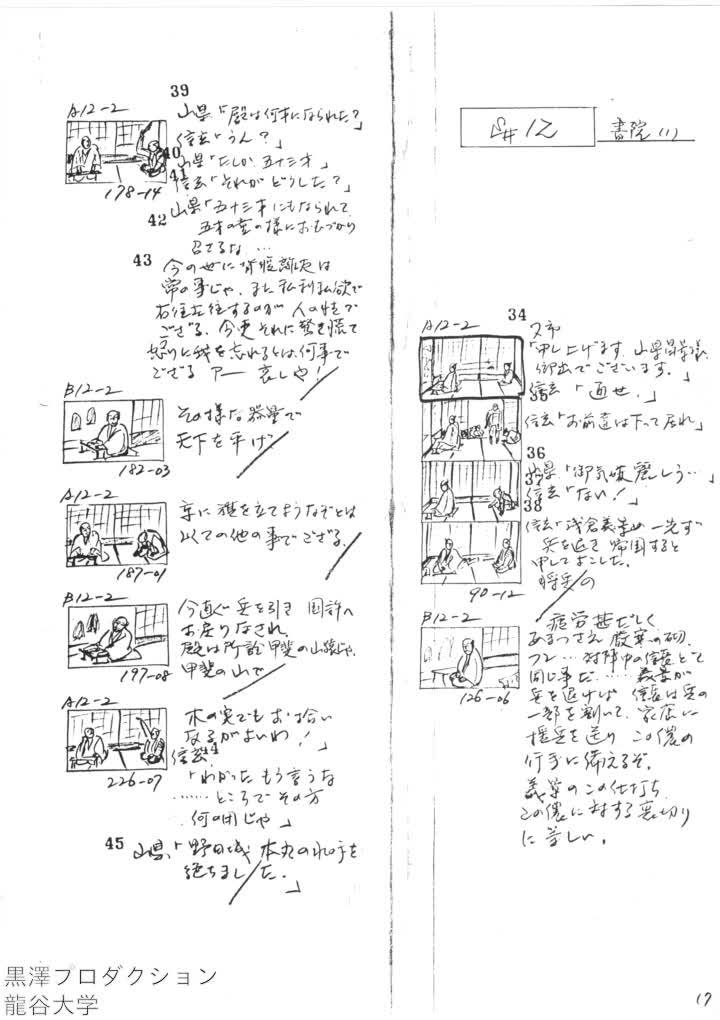 S# 12
書院(1)
34
A12-2
又市
「申し上げます、山県昌景様
御出でございます。」
35
信玄「通せ、」
信玄「お前達は下って居れ」
36
山県「御気嫌麗しう…」
37
信玄「ない!」
38
信玄「浅倉義景め一先ず
兵を退き帰国すると
申してよこした。
将兵の
90-12
B12-2
疲労甚だしく
あまつさえ厳寒の砌、
フン…対陣中の信長とて
同じ事だ……義景が
兵を退けば 信長は兵の
一部を割いて、家康に
援兵を送り この儂の
行手に備えるぞ。
義景のこの仕打ち
この儂に対する裏切り
に等しい。
126-06
39
A12-2
山県「殿は何才になられた?」
信玄「うん?」
40
山県「たしか五十三才」
41
信玄「それがどうした?」
178-14
42
山県「五十三才にもなられて
五才の童の様におむづかり
召さるな…
43
今の世に背反離反は
常の事じゃ、また私利私欲で
右往左往するのが人の性で
ござる、今更それに驚き慌て
怒りに我を忘れるとは何事で
ござる アー 哀しや!
B12-2
その様な器量で
天下を平げ
182-03
A12-2
京に旗を立てようなぞとは
以ての他の事でござる。
187-01
B12-2
今直ぐ兵を引き 国許へ
お戻りなされ、
殿は所詮 甲斐の山猿じゃ、
甲斐の山で
197-08
A12-2
木の実でもお拾い
なるがよいわ!」
44
信玄
「わかった もう言うな
……ところでその方
何の用じゃ」
226-07
45
山県「野田城 本丸の水の手を
絶ちました。」
17
黒澤プロダクション
龍谷大学